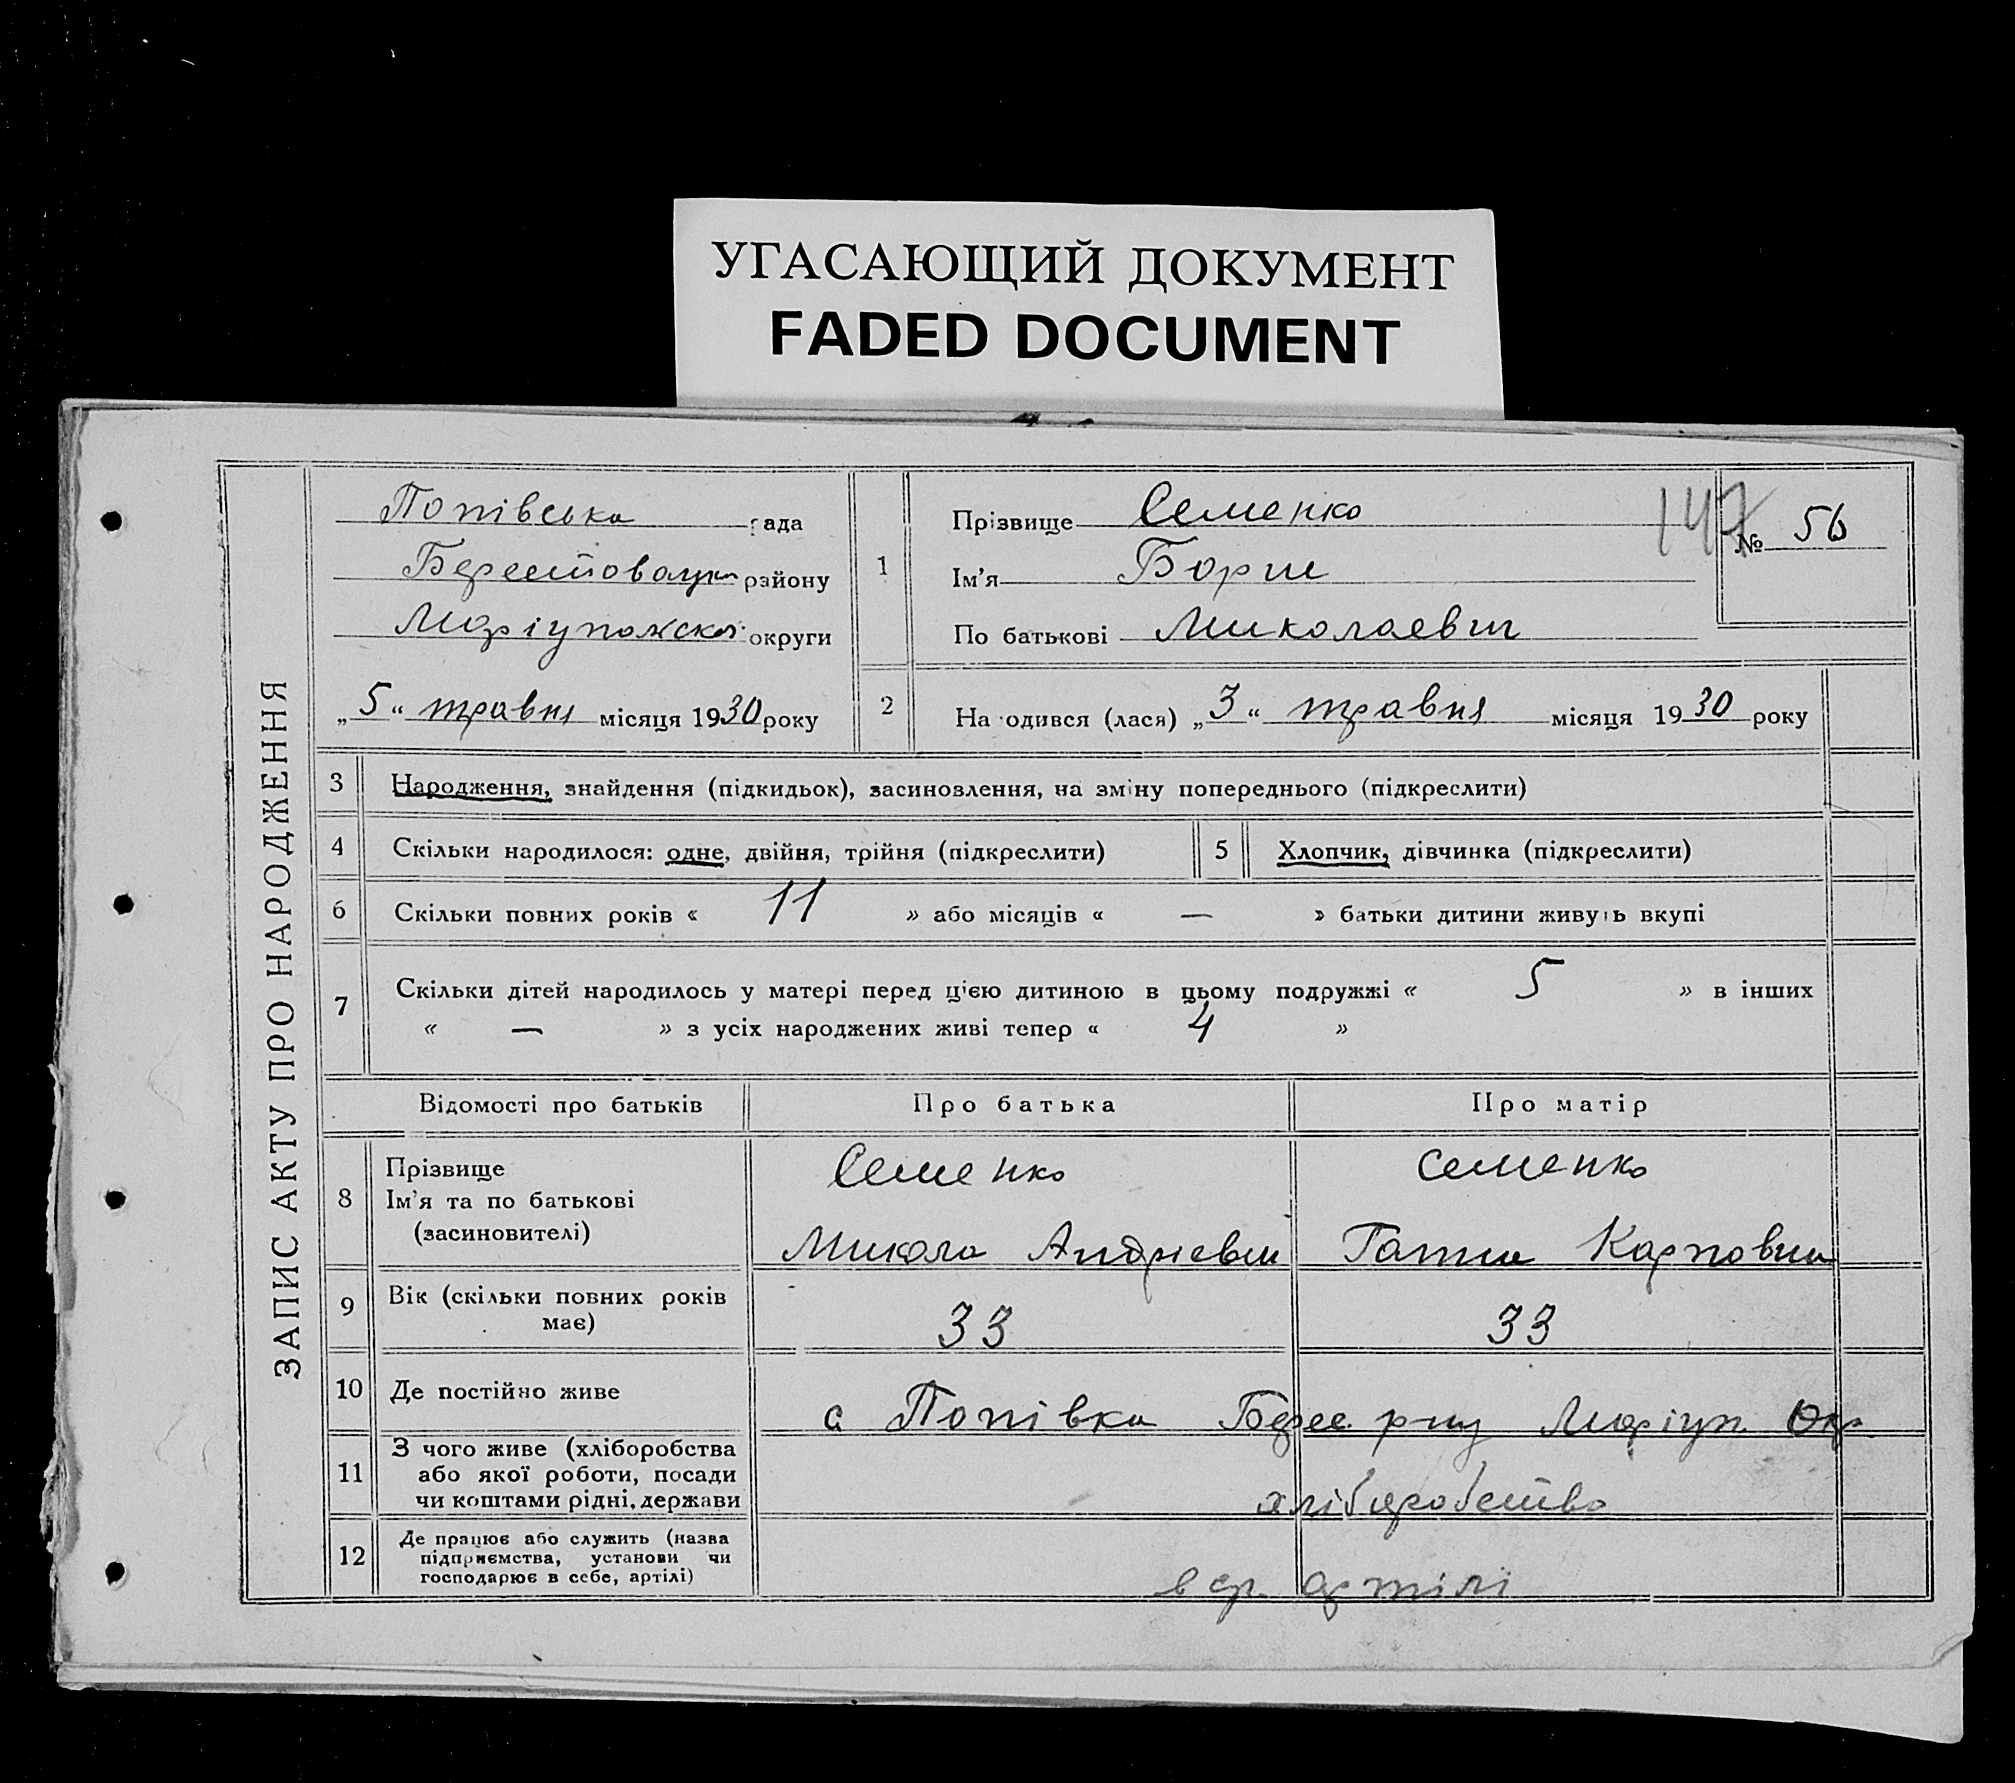 УГАСАЮЩИЙ ДОКУМЕНТ
FADED DOCUMENT
ЗАПИС АКТУ ПРО НАРОДЖЕННЯ
Попівська рада
району
округи
„5“ травня місяця 1930 року
1
Прізвище Семенко
Ім'я Борис
По батькові Миколаевич
147
№ 56
2
На одився (лася) „3“ травня місяця 1930 року
3 Народження, знайдення (підкидьок), засиновлення, на зміну попереднього (підкреслити)
4 Скільки народилося: одне, двійня, трійня (підкреслити) 5 Хлопчик, дівчинка (підкреслити)
6 Скільки повних років « 11 » або місяців « — » батьки дитини живуть вкупі
7 Скільки дітей народилось у матері перед цією дитиною в цьому подружжі « 5 » в інших
« — » з усіх народжених живі тепер « 4 »
Відомості про батьків Про батька Про матір
8 Прізвище
Ім'я та по батькові
(засновителі)
Семенко
Микола Андрієвич
Семенко
Ганна Карповна
9 Вік (скільки повних років
має)
33 33
10 Де постійно живе с Попівка Берес. р-ну Маріуп. Окр.
11 З чого живе (хліборобства
або якої роботи, посади
чи коштами рідні, держави
хліборобство
12 Де працює або служить (назва
підприємства, установи чи
господарює в себе, артілі)
артілі